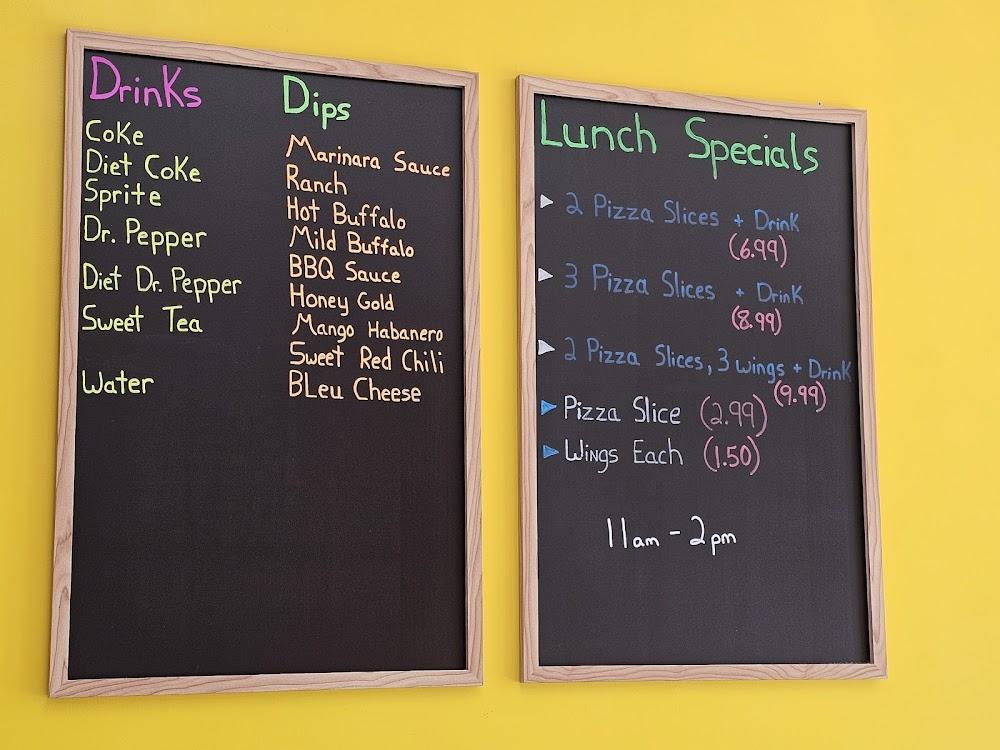 Drinks
Coke
Diet Coke
Sprite
Dr. Pepper
Diet Dr. Pepper
Sweet Tea
Water
Dips
Marinara Sauce
Ranch
Hot Buffalo
Mild Buffalo
BBQ Sauce
Honey Gold
Mango Habanero
Sweet Red Chili
BLeu Cheese
Lunch Specials
2 Pizza Slices + Drink
(6.99)
3 Pizza Slices + Drink
(8.99)
2 Pizza Slices, 3 wings + Drink
(9.99)
Pizza Slice (2.99)
Wings Each (1.50)
11am - 2pm